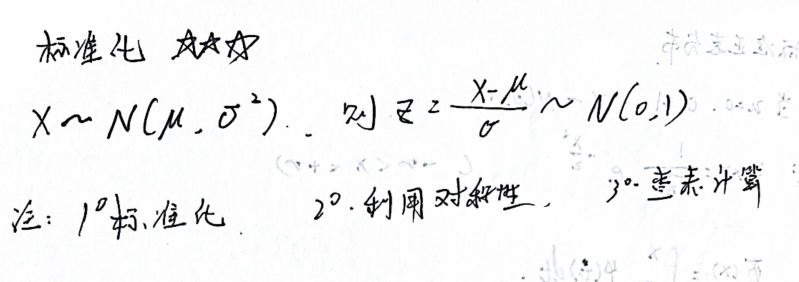 标准化 ☆☆☆
X ~ N(μ, σ²). 则 Z = (X-μ)/σ ~ N(0,1)
注: 1° 标准化. 2°. 利用对称性. 3°. 查表计算